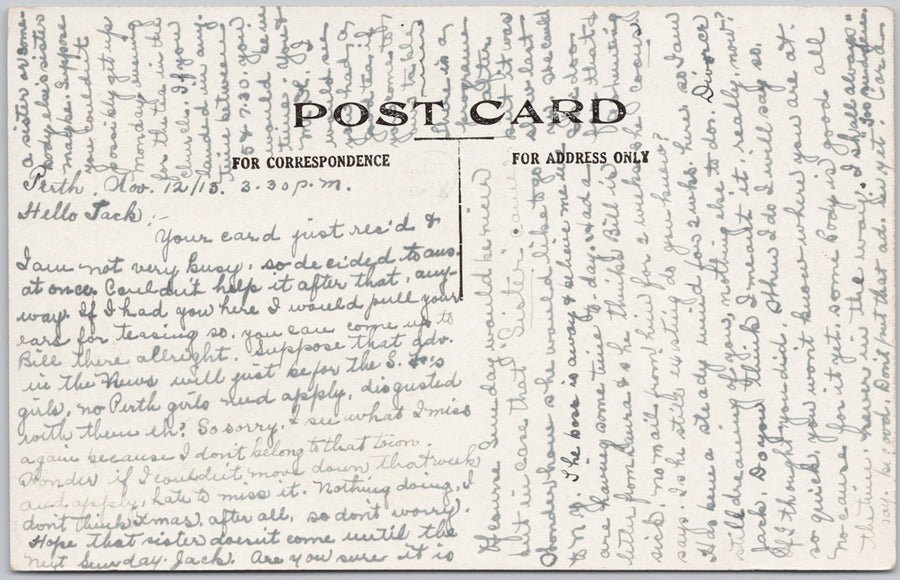 POST CARD
FOR CORRESPONDENCE
FOR ADDRESS ONLY
Perth, Nov. 12/15. 3.30 p.m.
Hello Jack :-
Your card just rec'd &
I am not very busy, so decided to ans.
at once. Couldn't help it after that, any-
way. If I had you here I would pull your
ears for teasing so. you can come up to
Bill there allright. Suppose that adv.
in the News will just be for the S.
girls, no Perth girls need apply, disgusted
with them eh? So sorry, & see what I miss
again because I don't belong to that town.
Wonder if I couldn't move down that week
and apply, hate to miss it. Nothing doing, I
don't think Xmas, after all, so don't worry.
Hope that sister doesn't come until the
next Sunday Jack. Are you sure it is
a sister or some-
body else's sister
maybe. Suppose
you couldn't
possibly get up
Monday evening
for the tea in the
Curls. If you
landed in any
time between
5 & 7.30 you
would be in
time. You
If of course Sunday would be nicer
but in case that "Sister" came
Wonder how she would like to go
to N.Y. The boss is away & believe me we
are having some time to-day. Had a
letter from Laura & she thinks Bill is
sick, no mail from him for 2 weeks he
says. Is he still existing do you know?
Has been a steady wind for 2 wks. here so I am
still dreaming of you, nothing else to do. Divorce
Jack. Do you think I meant it really, now?
If I thought you did. When I do I will say so,
so quick, you won't know where you are at.
no cause for it yet, some body is good all
the time, never in the way. I shall always
say, be good. Don't put that ad. in yet. "Too much fun." Card